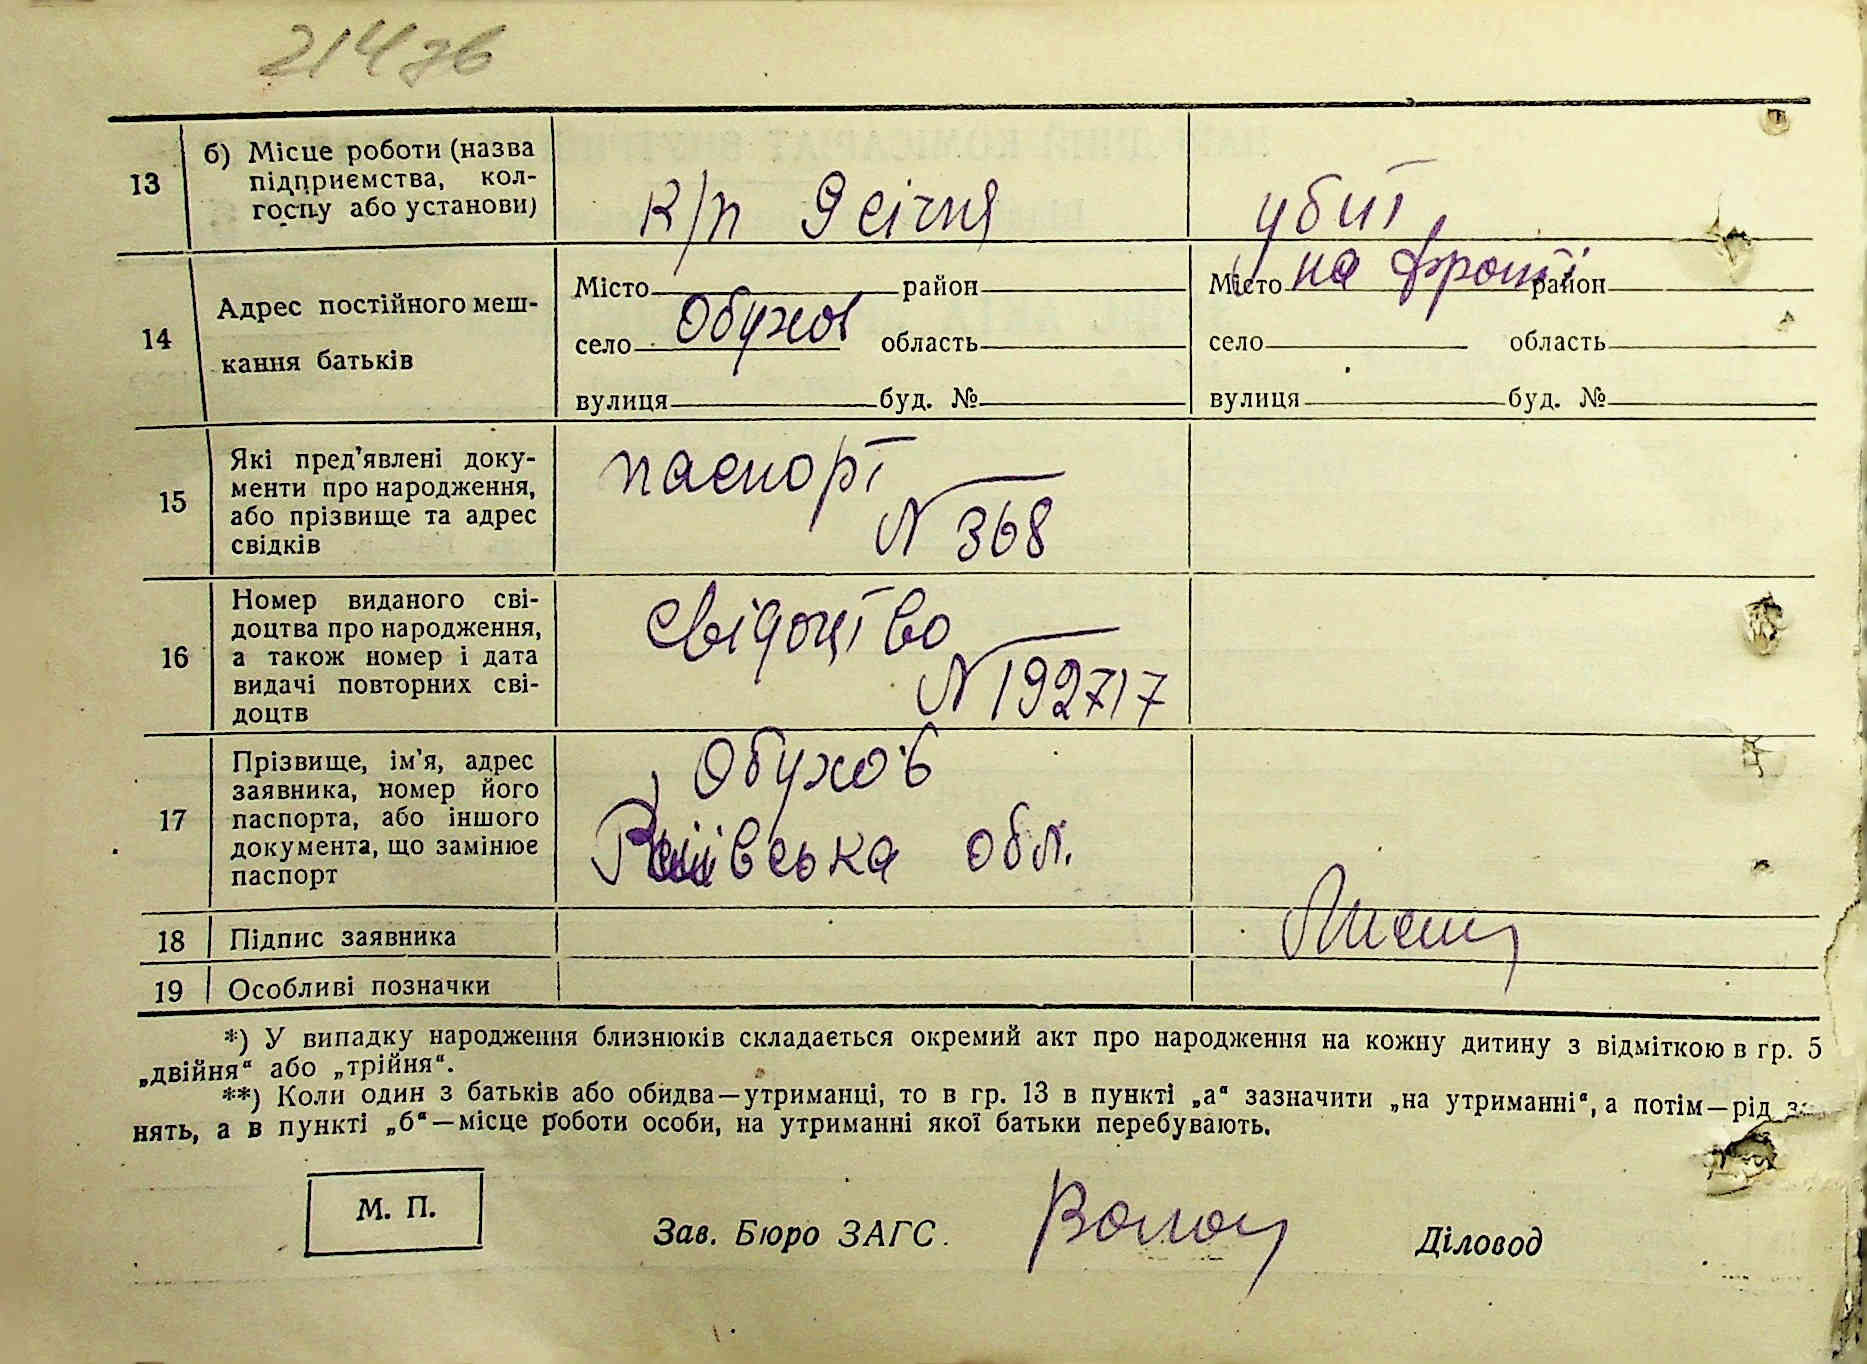 214 зв
13 б) Місце роботи (назва
підприємства, кол-
госпу або установи)
к/п 9 січня
убит
на фронті
14 Адрес постійного меш-
кання батьків
Місто район
село Обухов область
вулиця буд. №
Місто район
село область
вулиця буд. №
15 Які пред'явлені доку-
менти про народження,
або прізвище та адрес
свідків
паспорт
N 368
16 Номер виданого сві-
доцтва про народження,
а також номер і дата
видачі повторних сві-
доцтв
свідоцтво
N 192717
17 Прізвище, ім'я, адрес
заявника, номер його
паспорта, або іншого
документа, що замінює
паспорт
Обухов
обл.
18 Підпис заявника
19 Особливі позначки
*) У випадку народження близнюків складається окремий акт про народження на кожну дитину з відміткою в гр. 5
„двійня“ або „трійня“.
**) Коли один з батьків або обидва—утриманці, то в гр. 13 в пункті „а“ зазначити „на утриманні“, а потім—рід за-
нять, а в пункті „б“—місце роботи особи, на утриманні якої батьки перебувають.
М. П.
Зав. Бюро ЗАГС.
Діловод